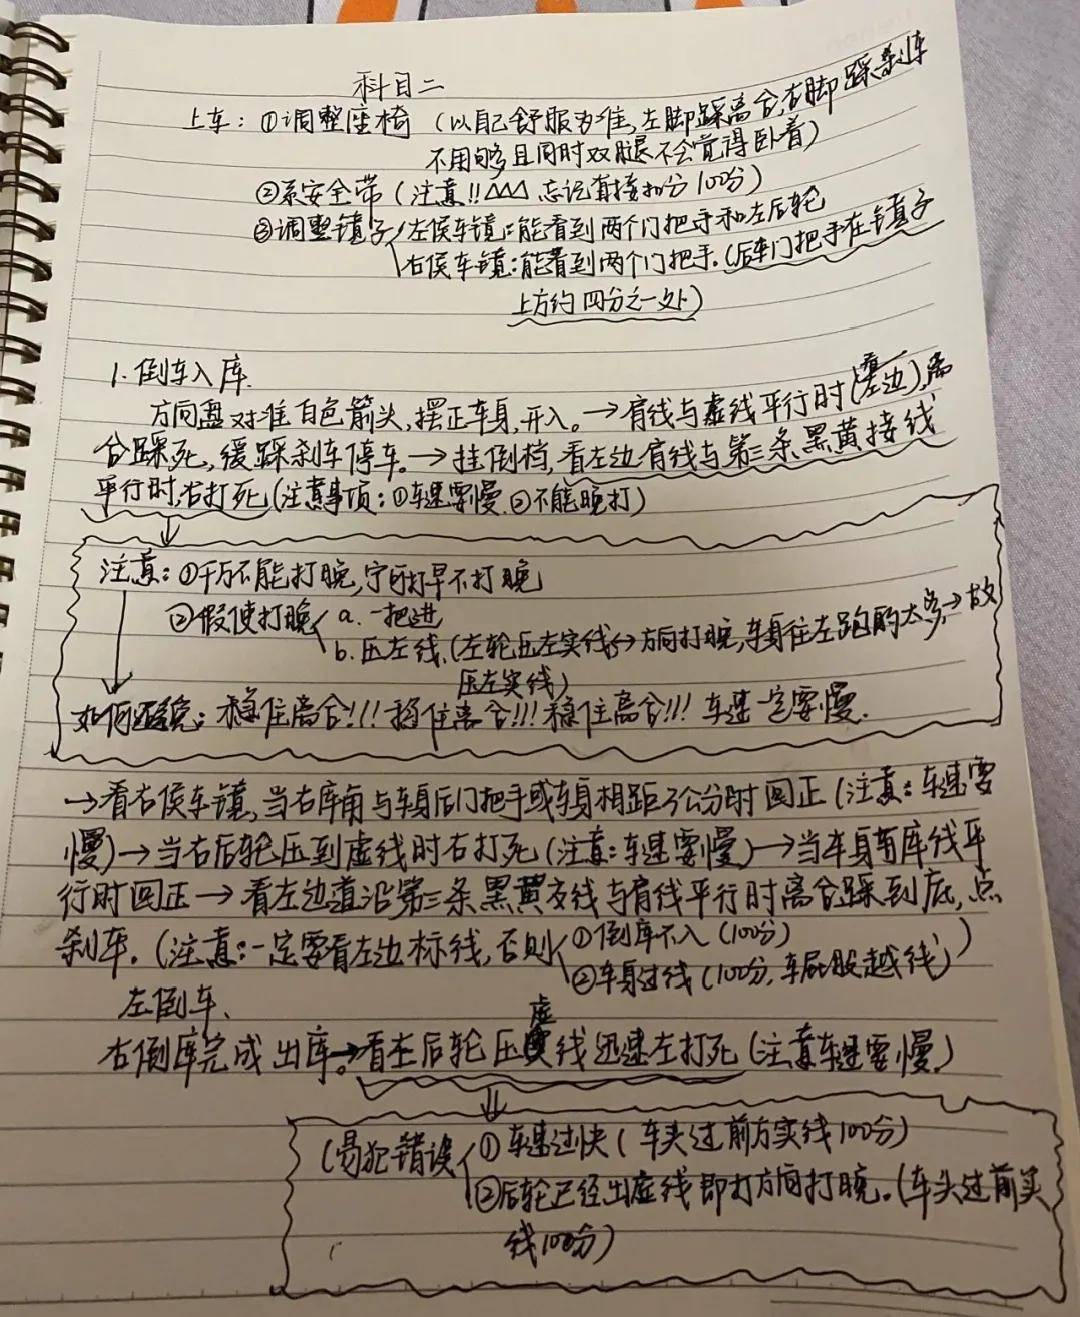 科目二
上车：①调整座椅（以自己舒服为准，左脚踩离合，右脚踩刹车
不用够且同时双腿不会觉得卧着）
②系安全带（注意!!△△△ 忘记直接扣分100分）
③调整镜子 左侯车镜：能看到两个门把手和左后轮
右侯车镜：能看到两个门把手.（后车门把手在镜子
上方约四分之一处）
1. 倒车入库.
方向盘对准白色箭头,摆正车身,开入。→肩线与虚线平行时(左边),离
合踩死,缓踩刹车停车.→挂倒档,看左边肩线与第三条黑黄接线
平行时,右打死(注意事项：①车速要慢.②不能晚打)
注意：①千万不能打晚,宁可打早不打晚
②假使打晚 a. 一把进
b. 压左线.(左轮压左实线→方向打晚,车身往左跑的太多→故
压左实线)
如何避免：稳住离合!!! 稳住离合!!! 稳住离合!!! 车速一定要慢.
→看右侯车镜,当右库角与车身后门把手或车身相距3公分时回正(注意：车速要
慢)→当右后轮压到虚线时右打死(注意：车速要慢)→当车身与库线平
行时回正→看左边道沿第三条黑黄交线与肩线平行时离合踩到底,点
刹车.(注意：一定要看左边标线,否则 ①倒库不入(100分)
②车身过线(100分,车屁股越线))
左倒车、
右倒库完成出库.→看左后轮压虚线迅速左打死(注意车速要慢.)
(易犯错误 ①车速过快(车头过前方实线100分)
②后轮已经出虚线即打方向打晚。(车头过前实
线100分)